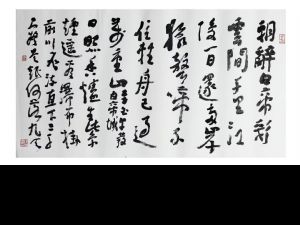 朝辭白帝彩
雲間千里江
陵一日還兩岸
猿聲啼不
住輕舟已過
萬重山
白帝城
日照香爐生紫
煙遙看瀑布掛
前川飛流直下三千
尺疑是銀河落九天